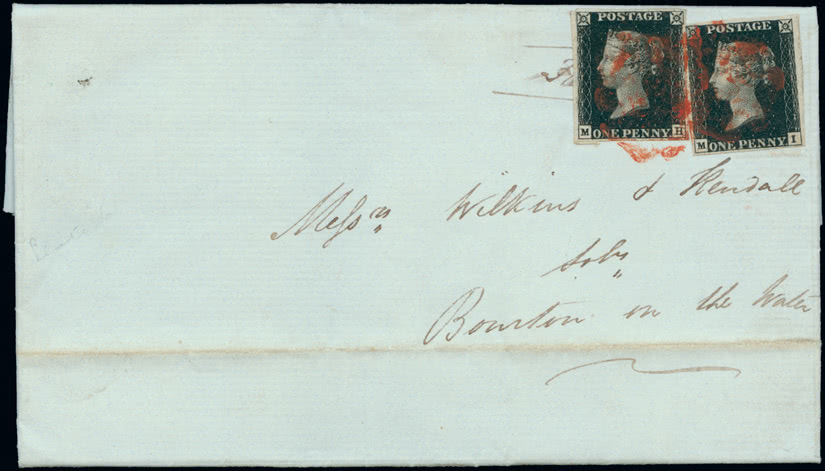 POSTAGE
M ONE PENNY H
POSTAGE
M ONE PENNY I
Messrs Wilkins & Kendall
Solrs
Bourton on the Water